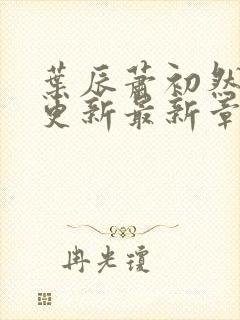 葉辰蕭初然
更新最新章
冉光瓊